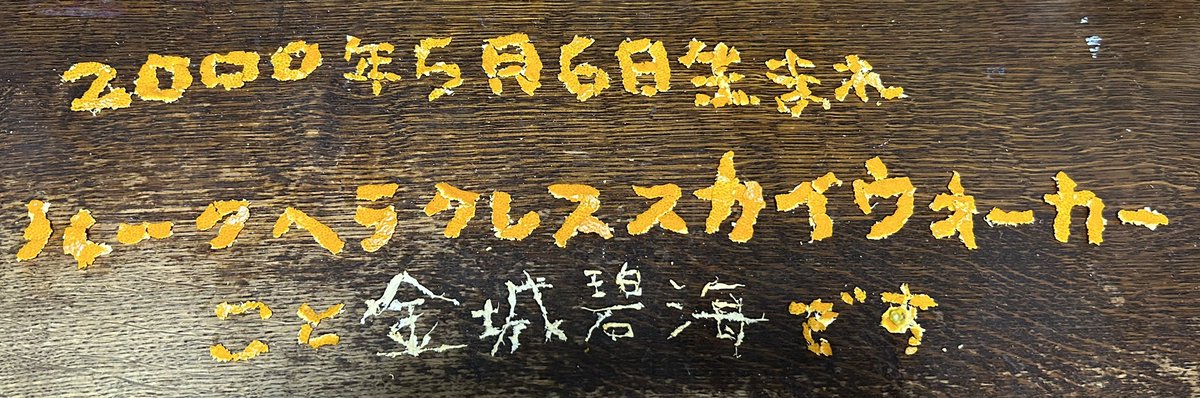 2000年5月6日生まれ
ルークヘラクレススカイウォーカー
こと金城碧海です